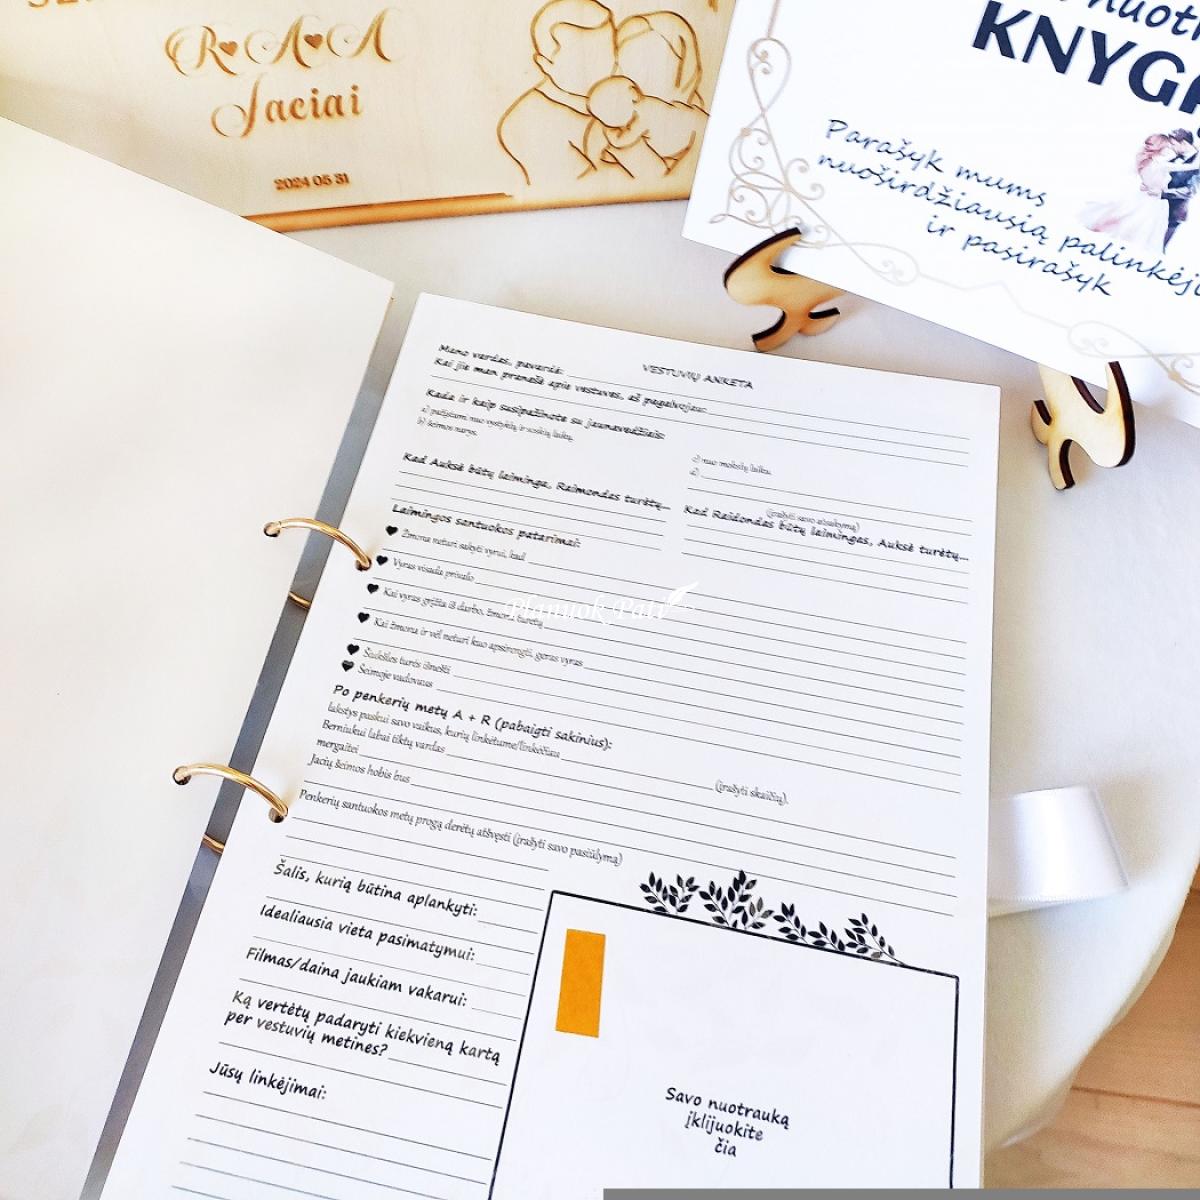 R♥A♥A
Jaciai
2024 05 31
KNYG
Parašyk mums
nuoširdžiausią palinkėji
ir pasirašyk
VESTUVIŲ ANKETA
Mano vardas, pavardė:
Kai jie man pranešė apie vestuves, aš pagalvojau:
Kada ir kaip susipažinote su jaunavedžiais:
a) pažįstami nuo vystyklų ir soskių laikų.
b) šeimos narys.
c) nuo mokslų laikų.
d)
(įrašyti savo atsakymą)
Kad Auksė būtų laiminga, Raimondas turėtų...
Kad Raidondas būtų laimingas, Auksė turėtų...
Laimingos santuokos patarimai:
Žmona neturi sakyti vyrui, kad
Vyras visada privalo
Kai vyras grįžta iš darbo, žmona turėtų
Kai žmona ir vėl neturi kuo apsirengti, geras vyras
Šiukšles turės išnešti
Šeimoje vadovaus
Planuok Pati
Po penkerių metų A + R (pabaigti sakinius):
lakstys paskui savo vaikus, kurių linkėtume/linkėčiau
(įrašyti skaičių).
Berniukui labai tiktų vardas
mergaitei
Jacių šeimos hobis bus
Penkerių santuokos metų progą derėtų atšvęsti (įrašyti savo pasiūlymą)
Šalis, kurią būtina aplankyti:
Idealiausia vieta pasimatymui:
Filmas/daina jaukiam vakarui:
Ką vertėtų padaryti kiekvieną kartą
per vestuvių metines?
Jūsų linkėjimai:
Savo nuotrauką
įklijuokite
čia